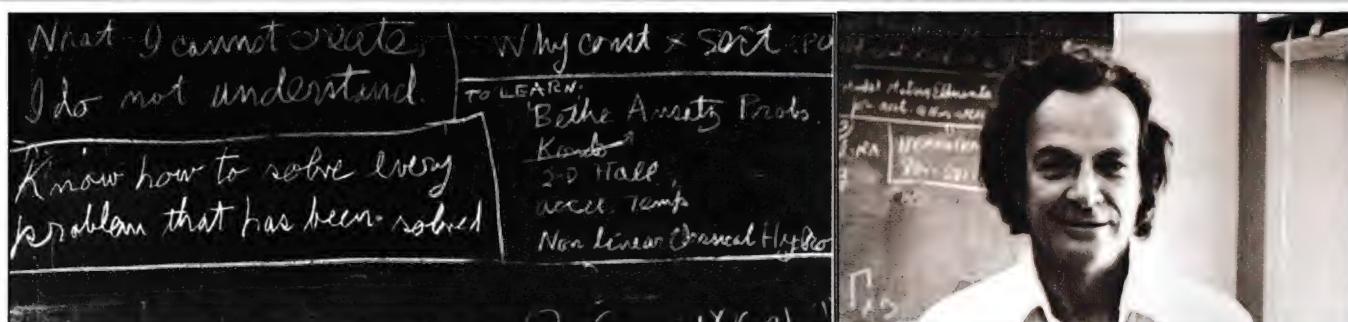 What I cannot create,
I do not understand.
Know how to solve every
problem that has been solved
Why const × sort
TO LEARN:
Bethe Ansatz Probs.
Kondo
2-D Hall
accel. Temp
Non Linear Classical Hydro